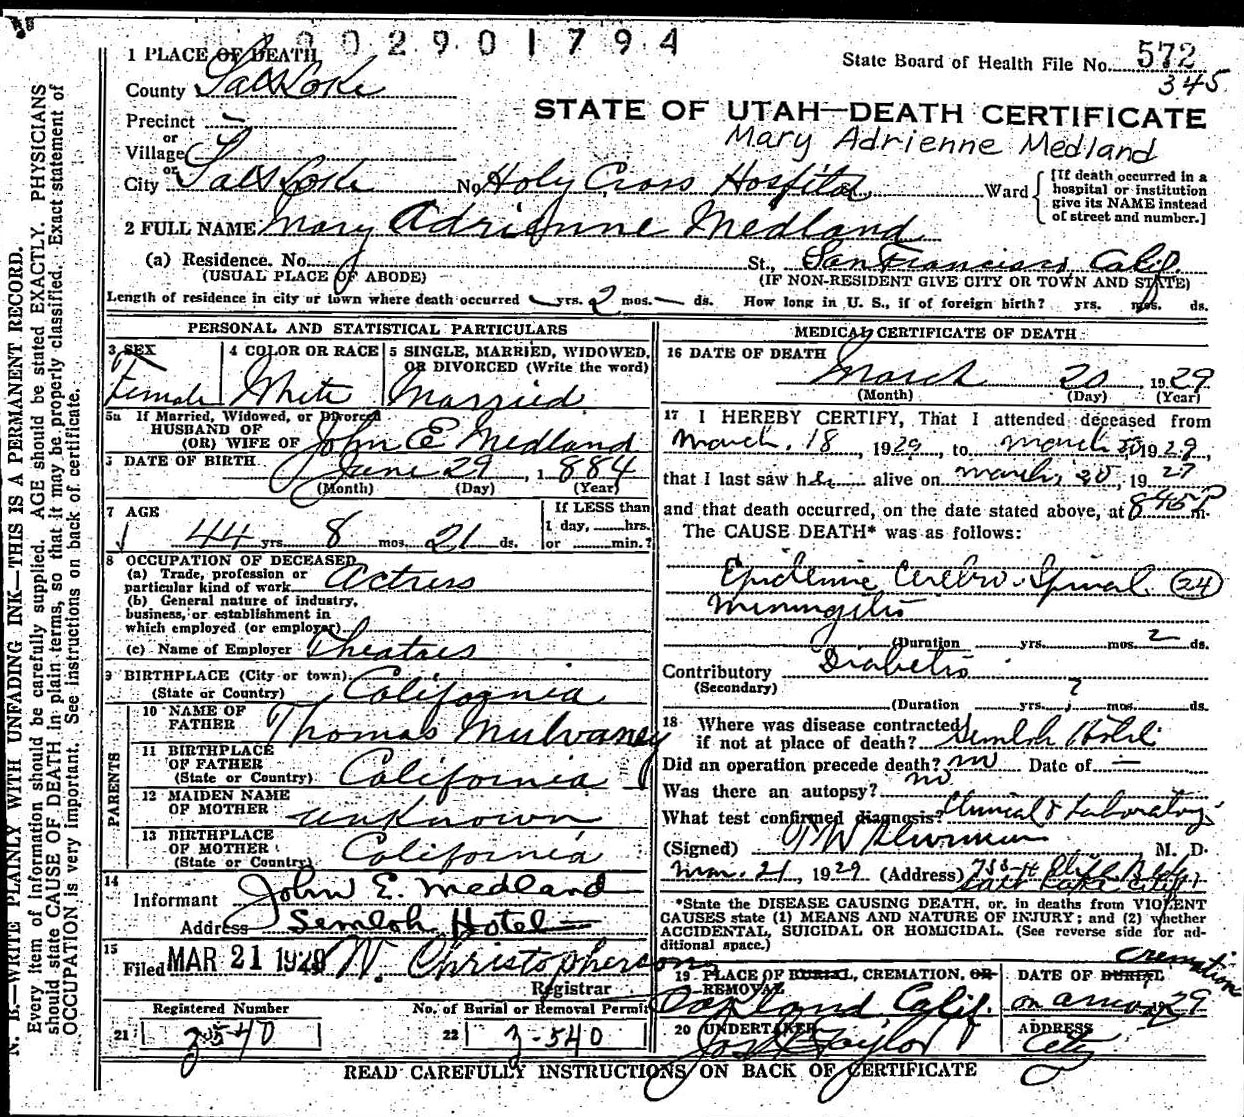 002901794
State Board of Health File No. 572
345
STATE OF UTAH—DEATH CERTIFICATE
Mary Adrienne Medland
1 PLACE OF DEATH
County Salt Lake
Precinct —
or
Village
or
City Salt Lake No. Holy Cross Hospital Ward
[If death occurred in a hospital or institution give its NAME instead of street and number.]
2 FULL NAME Mary Adrienne Medland
(a) Residence. No. St., San Francisco, Calif.
(USUAL PLACE OF ABODE) (IF NON-RESIDENT GIVE CITY OR TOWN AND STATE)
Length of residence in city or town where death occurred — yrs. 2 mos. — ds. How long in U. S., if of foreign birth? yrs. mos. ds.
PERSONAL AND STATISTICAL PARTICULARS
3 SEX
Female
4 COLOR OR RACE
White
5 SINGLE, MARRIED, WIDOWED, OR DIVORCED (Write the word)
Married
5a If Married, Widowed, or Divorced
HUSBAND OF
(OR) WIFE OF John E Medland
DATE OF BIRTH June 29, 1884
(Month) (Day) (Year)
7 AGE
44 yrs. 8 mos. 21 ds.
If LESS than
1 day, hrs.
or min.?
8 OCCUPATION OF DECEASED
(a) Trade, profession or
particular kind of work Actress
(b) General nature of industry,
business, or establishment in
which employed (or employer)
(c) Name of Employer Theatres
9 BIRTHPLACE (City or town)
(State or Country) California
PARENTS
10 NAME OF
FATHER Thomas Mulvaney
11 BIRTHPLACE
OF FATHER
(State or Country) California
12 MAIDEN NAME
OF MOTHER unknown
13 BIRTHPLACE
OF MOTHER
(State or Country) California
14
Informant John E. Medland
Address Semloh Hotel
15
Filed MAR 21 1929 N. Christopherson
Registrar
Registered Number No. of Burial or Removal Permit
21 22 3-540
MEDICAL CERTIFICATE OF DEATH
16 DATE OF DEATH
March 20, 1929
(Month) (Day) (Year)
17 I HEREBY CERTIFY, That I attended deceased from
March, 18, 1929, to March 20 1929,
that I last saw her alive on March, 20, 1929
and that death occurred, on the date stated above, at 845P m.
The CAUSE DEATH* was as follows:
Epidemic Cerebro-Spinal (24)
Meningitis
(Duration yrs. mos. 2 ds.
Contributory Diabetis
(Secondary) ?
(Duration yrs. mos. ds.
18 Where was disease contracted
if not at place of death? Semloh Hotel
Did an operation precede death? no Date of —
Was there an autopsy? no
What test confirmed diagnosis? Clinical & Laboratory
(Signed) M. D.
Mar. 21, 1929 (Address)
Salt Lake City
*State the DISEASE CAUSING DEATH, or, in deaths from VIOLENT
CAUSES state (1) MEANS AND NATURE OF INJURY; and (2) whether
ACCIDENTAL, SUICIDAL OR HOMICIDAL. (See reverse side for ad-
ditional space.)
19 PLACE OF BURIAL, CREMATION, OR
REMOVAL
Oakland, Calif.
Cremation
DATE OF BURIAL
20 UNDERTAKER
Taylor
ADDRESS
City
READ CAREFULLY INSTRUCTIONS ON BACK OF CERTIFICATE
N. B.—WRITE PLAINLY WITH UNFADING INK—THIS IS A PERMANENT RECORD.
Every item of information should be carefully supplied. AGE should be stated EXACTLY. PHYSICIANS
should state CAUSE OF DEATH in plain terms, so that it may be properly classified. Exact statement of
OCCUPATION is very important. See instructions on back of certificate.